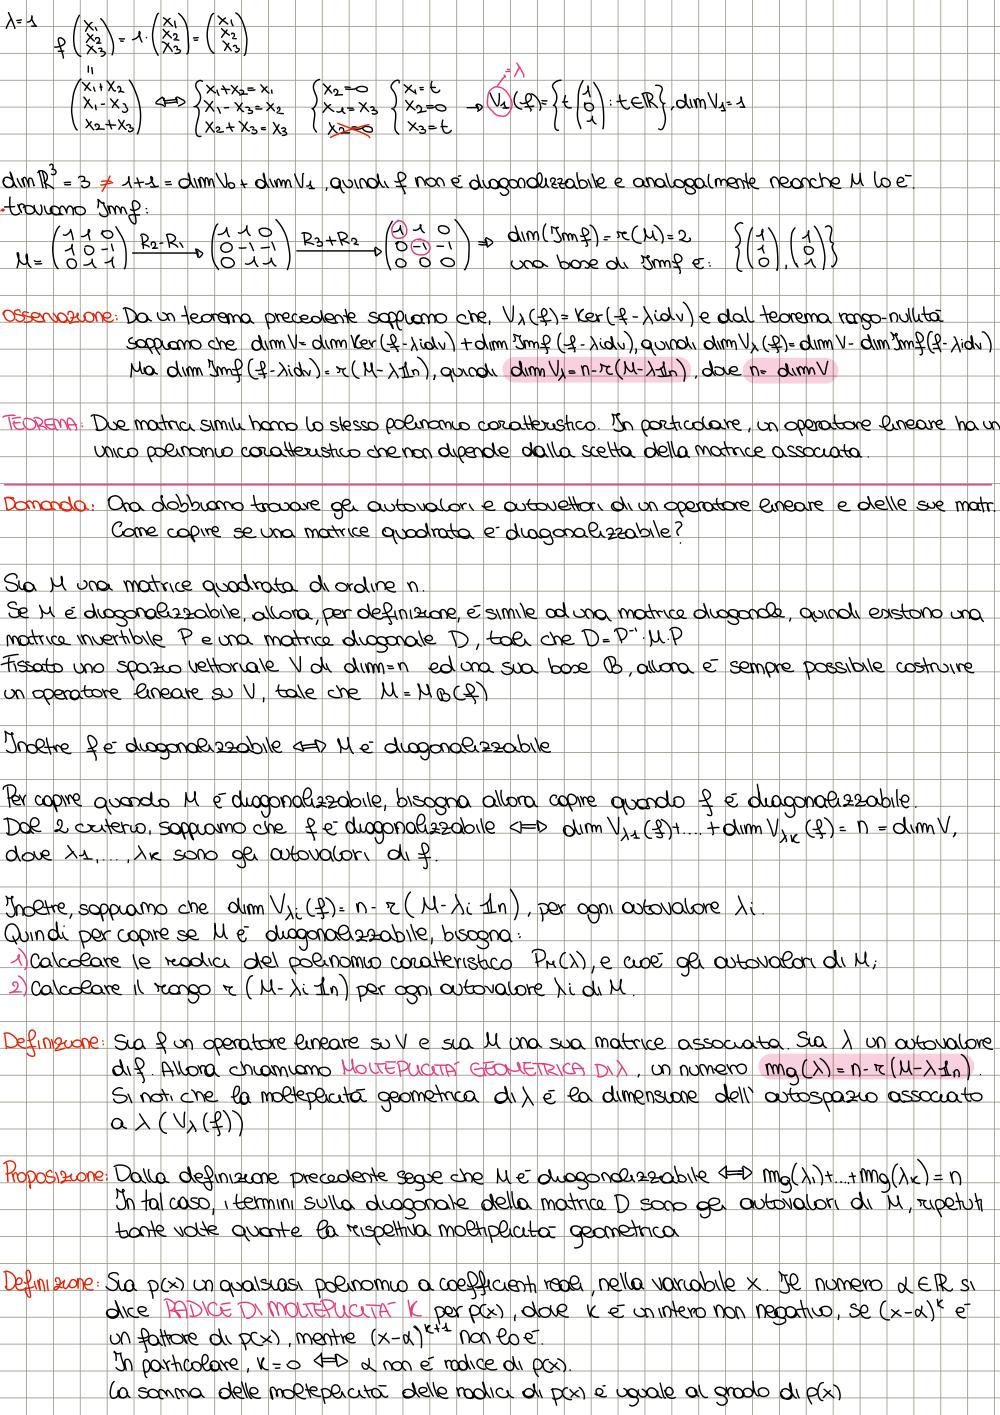 λ=1 f(x₁ x₂ x₃) = 1·(x₁ x₂ x₃) = (x₁ x₂ x₃)
=λ
(x₁+x₂ x₁-x₃ x₂+x₃) ⟺ {x₁+x₂=x₁ x₁-x₃=x₂ x₂+x₃=x₃ {x₂=0 x₁=x₃ x₂=0 {x₁=t x₂=0 x₃=t → V₁(f)={t(1 0 1): t∈ℝ}, dim V₁=1
dim ℝ³ = 3 ≠ 1+1 = dim V₀ + dim V₁, quindi f non è diagonalizzabile e analogalmente neanche M lo è.
troviamo Imf:
M= (1 1 0 1 0 -1 0 1 1) R2-R1 → (1 1 0 0 -1 -1 0 1 1) R3+R2 → (1 1 0 0 -1 -1 0 0 0) ⇒ dim(Imf)=r(M)=2
una base di Imf è: {(1 1 0), (1 0 1)}
Osservazione: Da un teorema precedente sappiamo che, Vλ(f)=Ker(f-λidv) e dal teorema rango-nullità
sappiamo che dim V= dim Ker(f-λidv)+dim Imf(f-λidv), quindi dim Vλ(f)= dim V- dim Imf(f-λidv)
Ma dim Imf(f-λidv)=r(M-λ1n), quindi dim Vλ=n-r(M-λ1n), dove n= dim V
TEOREMA: Due matrici simili hanno lo stesso polinomio caratteristico. In particolare, un operatore lineare ha un
unico polinomio caratteristico che non dipende dalla scelta della matrice associata.
Domanda: Ora dobbiamo trovare gli autovalori e autovettori di un operatore lineare e delle sue matr.
Come capire se una matrice quadrata è diagonalizzabile?
Sia M una matrice quadrata di ordine n.
Se M è diagonalizzabile, allora, per definizione, è simile ad una matrice diagonale, quindi esistono una
matrice invertibile P e una matrice diagonale D, tali che D=P⁻¹·M·P
Fissato uno spazio vettoriale V di dim=n ed una sua base B, allora è sempre possibile costruire
un operatore lineare su V, tale che M=MB(f)
Inoltre f è diagonalizzabile ⟺ M è diagonalizzabile
Per capire quando M è diagonalizzabile, bisogna allora capire quando f è diagonalizzabile.
Dal 2 criterio, sappiamo che f è diagonalizzabile ⟺ dim Vλ1(f)+....+dim Vλk(f)= n = dim V,
dove λ1,...,λk sono gli autovalori di f.
Inoltre, sappiamo che dim Vλi(f)= n-r(M-λi 1n), per ogni autovalore λi.
Quindi per capire se M è diagonalizzabile, bisogna:
1) Calcolare le radici del polinomio caratteristico PM(λ), e cioè gli autovalori di M;
2) Calcolare il rango r(M-λi1n) per ogni autovalore λi di M.
Definizione: Sia f un operatore lineare su V e sia M una sua matrice associata. Sia λ un autovalore
di f. Allora chiamiamo MOLTEPLICITÀ GEOMETRICA DI λ, un numero mg(λ)=n-r(M-λ1n).
Si noti che la molteplicità geometrica di λ è la dimensione dell' autospazio associato
a λ (Vλ(f))
Proposizione: Dalla definizione precedente segue che M è diagonalizzabile ⟺ mg(λ1)+...+mg(λk)=n
In tal caso, i termini sulla diagonale della matrice D sono gli autovalori di M, ripetuti
tante volte quante la rispettiva moltiplicità geometrica
Definizione: Sia p(x) un qualsiasi polinomio a coefficienti reali, nella variabile x. Il numero α∈ℝ si
dice RADICE DI MOLTEPLICITÀ K per p(x), dove K è un intero non negativo, se (x-α)ᵏ è
un fattore di p(x), mentre (x-α)ᵏ⁺¹ non lo è.
In particolare, K=0 ⟺ α non è radice di p(x).
La somma delle molteplicità delle radici di p(x) è uguale al grado di p(x)